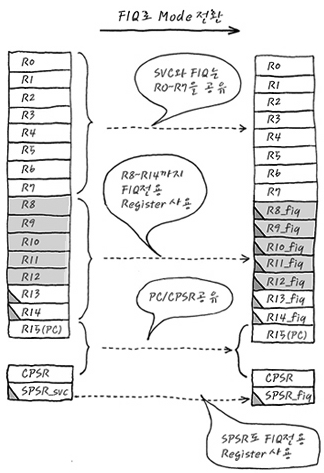 FIQ로 Mode 전환
R0
R1
R2
R3
R4
R5
R6
R7
R8
R9
R10
R11
R12
R13
R14
R15(PC)
CPSR
SPSR_svc
SVC와 FIQ는
R0-R7을 공유
R8-R14까지
FIQ전용
Register 사용
PC/CPSR공유
SPSR도 FIQ전용
Register 사용
R0
R1
R2
R3
R4
R5
R6
R7
R8_fiq
R9_fiq
R10_fiq
R11_fiq
R12_fiq
R13_fiq
R14_fiq
R15(PC)
CPSR
SPSR_fiq